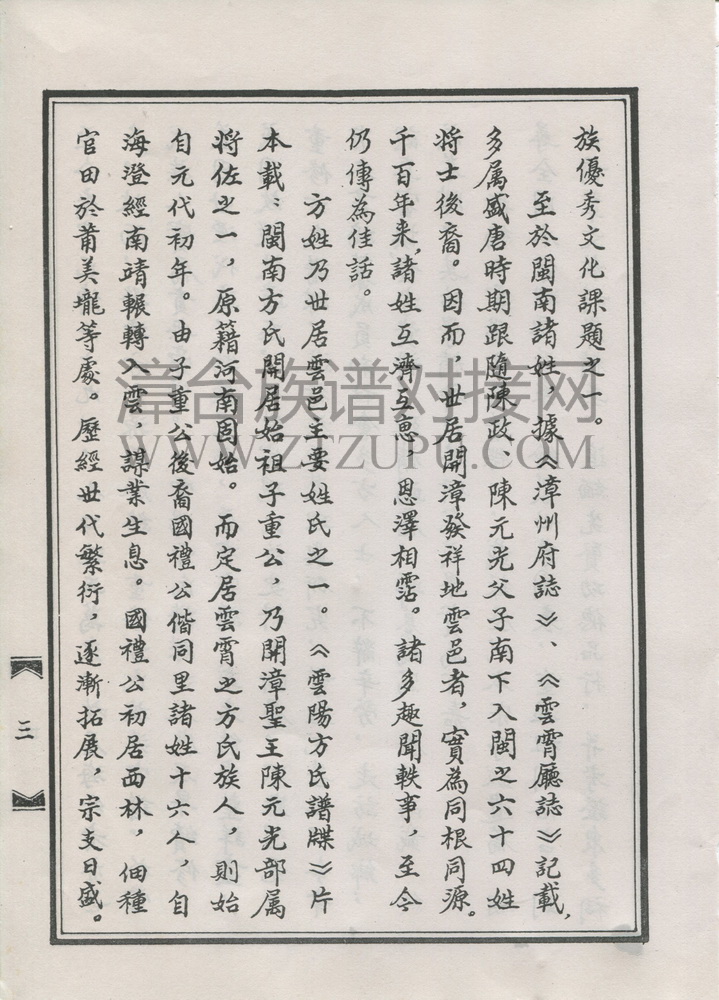 族優秀文化課題之一。
至於閩南諸姓，據《漳州府誌》、《雲霄廳誌》記載，
多属盛唐時期跟隨陳政、陳元光父子南下入閩之六十四姓
將士後裔。因而，世居開漳發祥地雲邑者，實為同根同源。
千百年来，諸姓互濟互惠，恩澤相霑。諸多趣聞軼事，至今
仍傳為佳話。
方姓乃世居雲邑主要姓氏之一。《雲陽方氏譜牒》片
本載：閩南方氏開居始祖子重公，乃開漳聖王陳元光部属
將佐之一，原籍河南固始。而定居雲霄之方氏族人，則始
自元代初年。由子重公後裔國禮公偕同里諸姓十六人，自
海澄經南靖輾轉入雲，謀業生息。國禮公初居西林，佃種
官田於莆美壠等處。歷經世代繁衍，逐漸拓展，宗支日盛。
三
漳台族谱对接网
WWW.ZTZUPU.COM